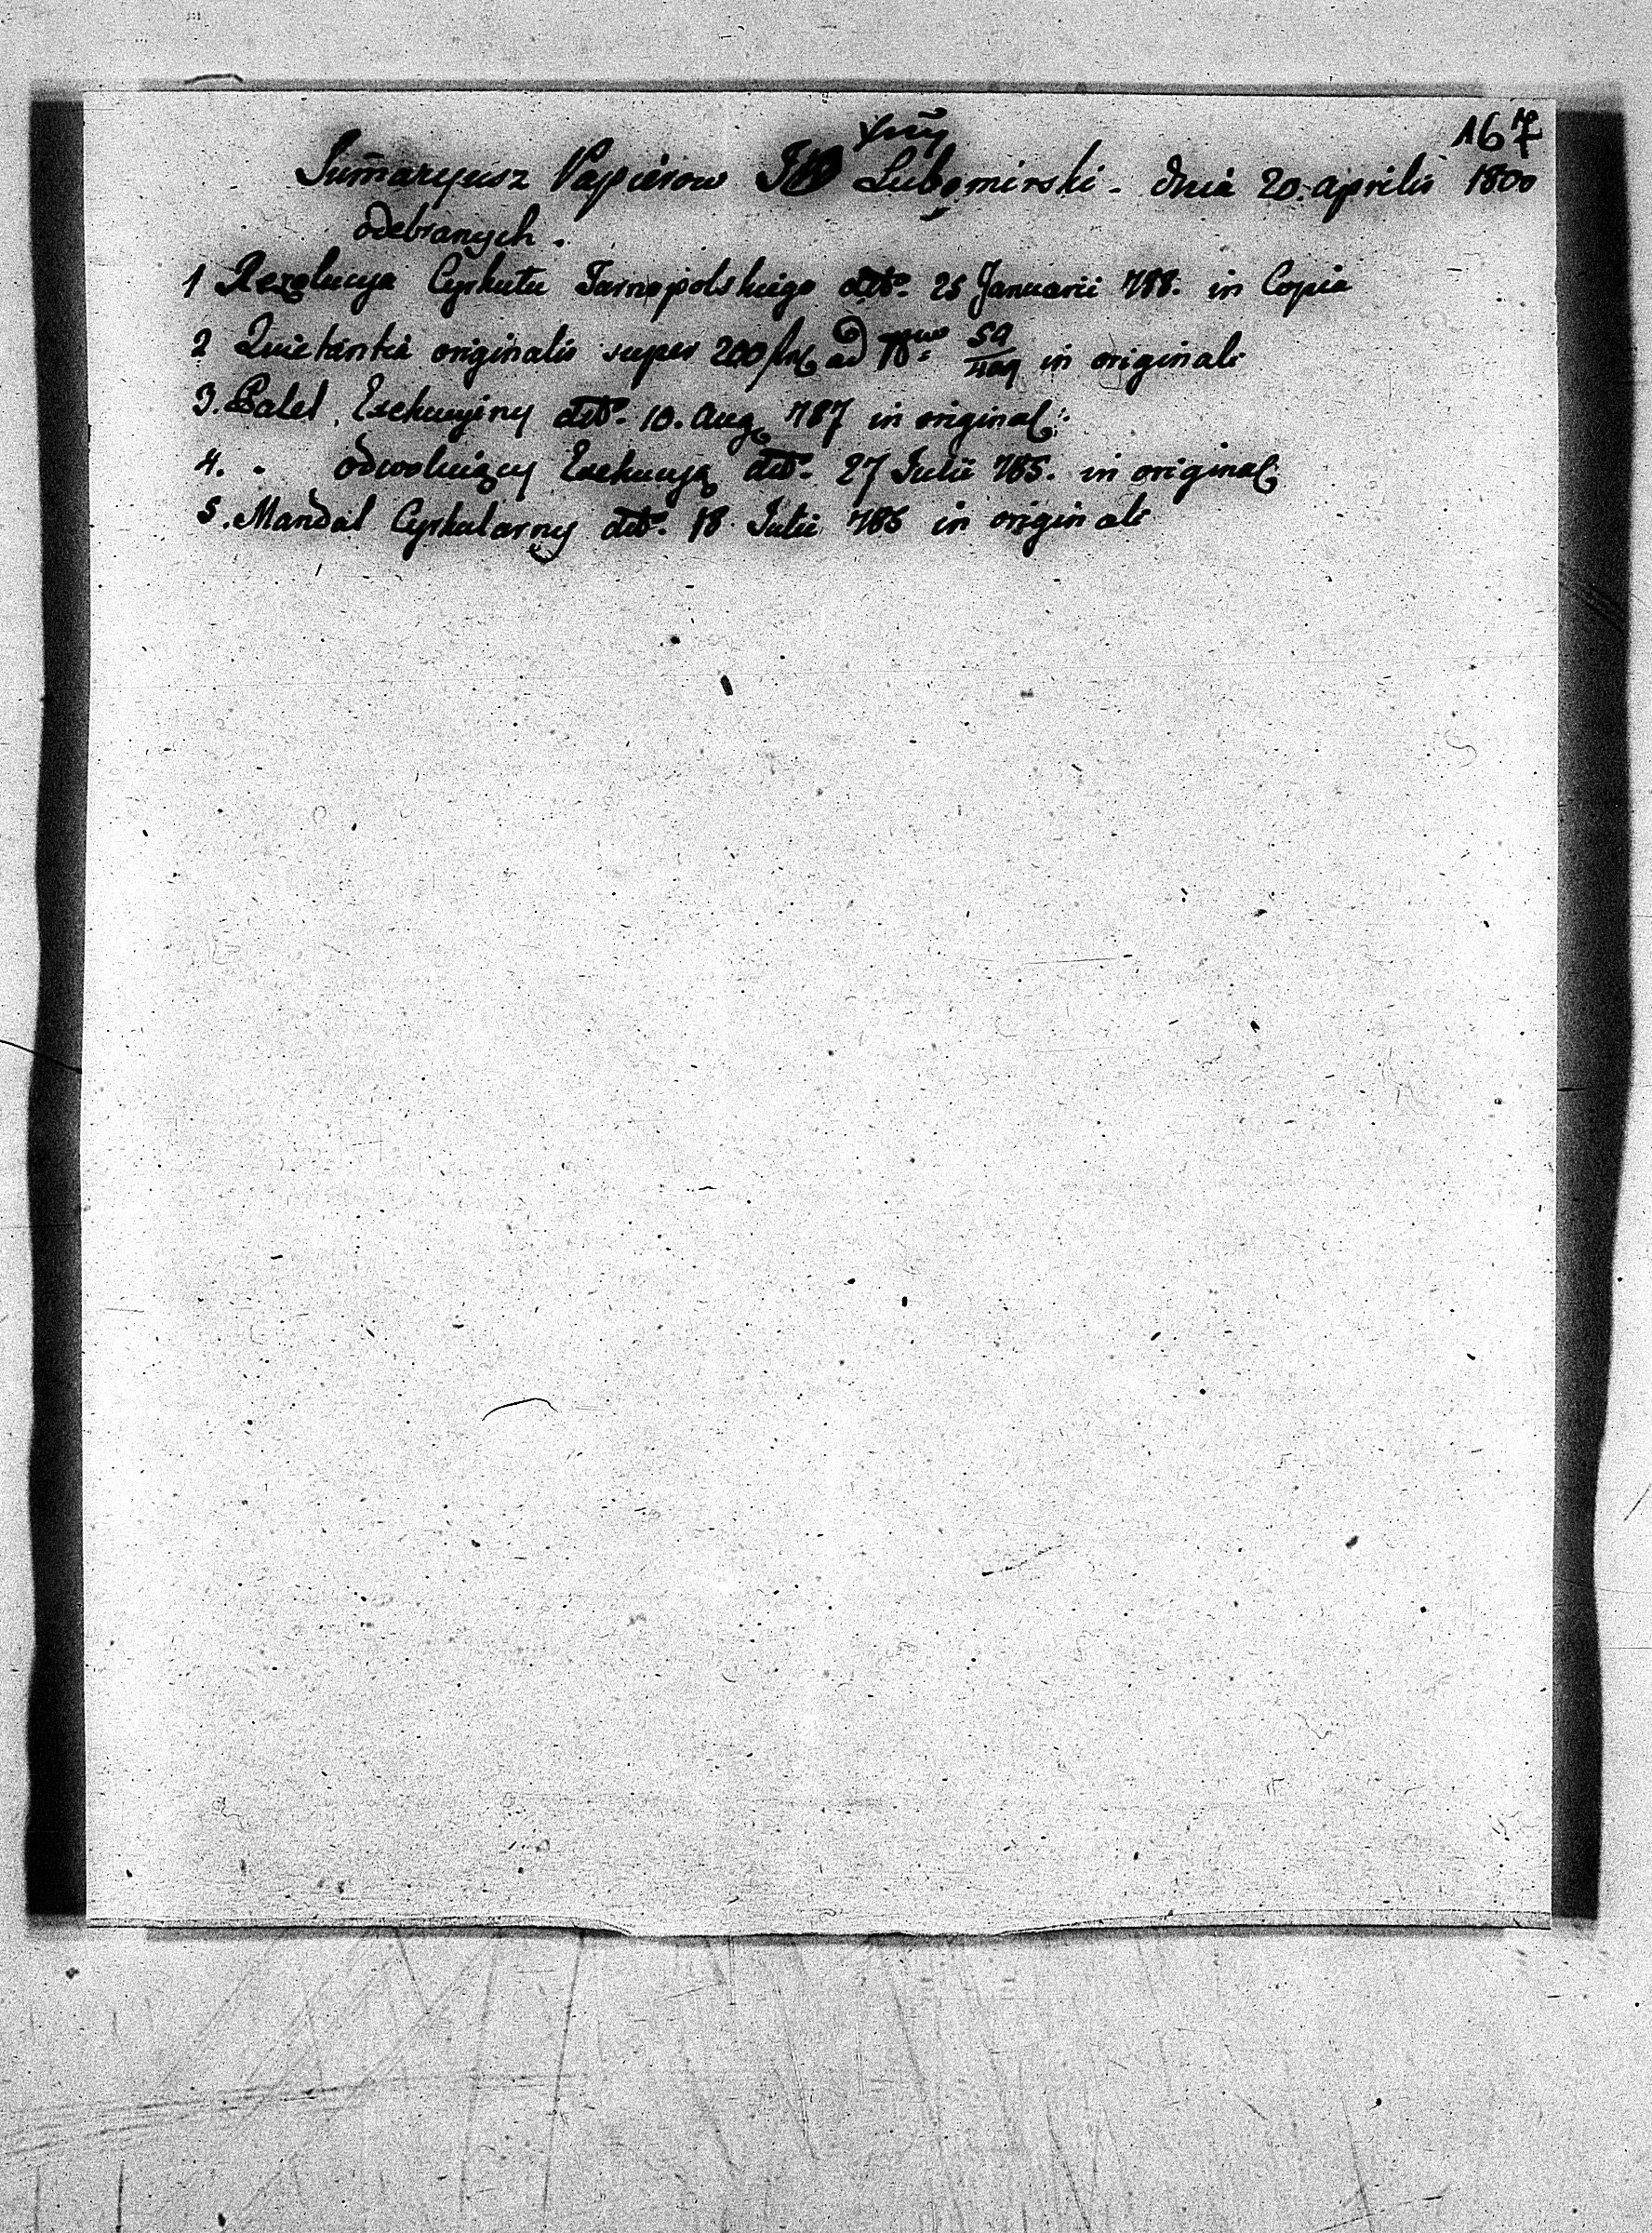 167
Xcny
Sum̄aryusz Papierow Lubomirski - dnia 20. aprilis 1800
odebranych.
1 Rezolucya Cyrkułu Tarnopolskiego dtto. 25 Januarii 788. in Copia
2 Quietantia originalis super 200 ad 59 in originali
3. Palet Exekucyiny dtto. 10. Aug 787 in original:
4. " odwołuiący Exekucyą dtto. 27 Julii 785. in original
5. Mandat Cyrkularny dtto. 18 Julii 785 in originali